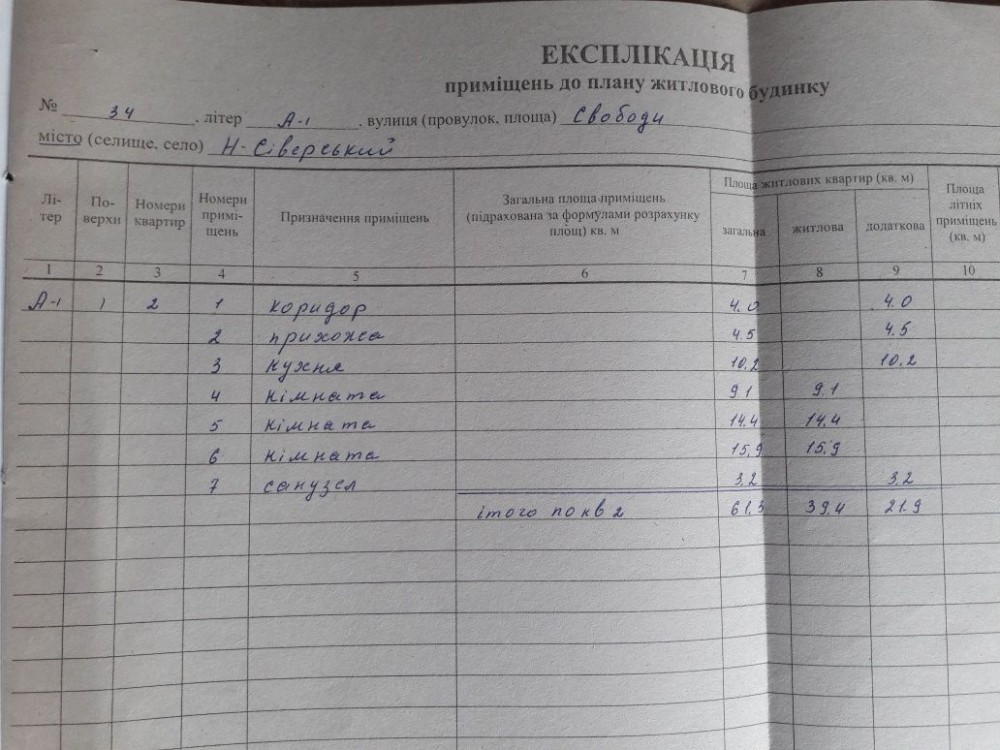 ЕКСПЛІКАЦІЯ
приміщень до плану житлового будинку
№ 34 . літер А-І . вулиця (провулок, площа) Свободи
місто (селище, село) Н-Сіверський
Лі-тер | По-верхи | Номери квартир | Номери примі-щень | Призначення приміщень | Загальна площа приміщень (підрахована за формулами розрахунку площ) кв. м | Площа житлових квартир (кв. м) | Площа літніх приміщень (кв. м)
загальна | житлова | додаткова
1 2 3 4 5 6 7 8 9 10
А-І 1 2 1 коридор 4.0 4.0
2 прихожа 4.5 4.5
3 кухня 10.2 10.2
4 кімната 9.1 9.1
5 кімната 14.4 14.4
6 кімната 15.9 15.9
7 санузел 3.2 3.2
ітого по кв 2 61.3 39.4 21.9